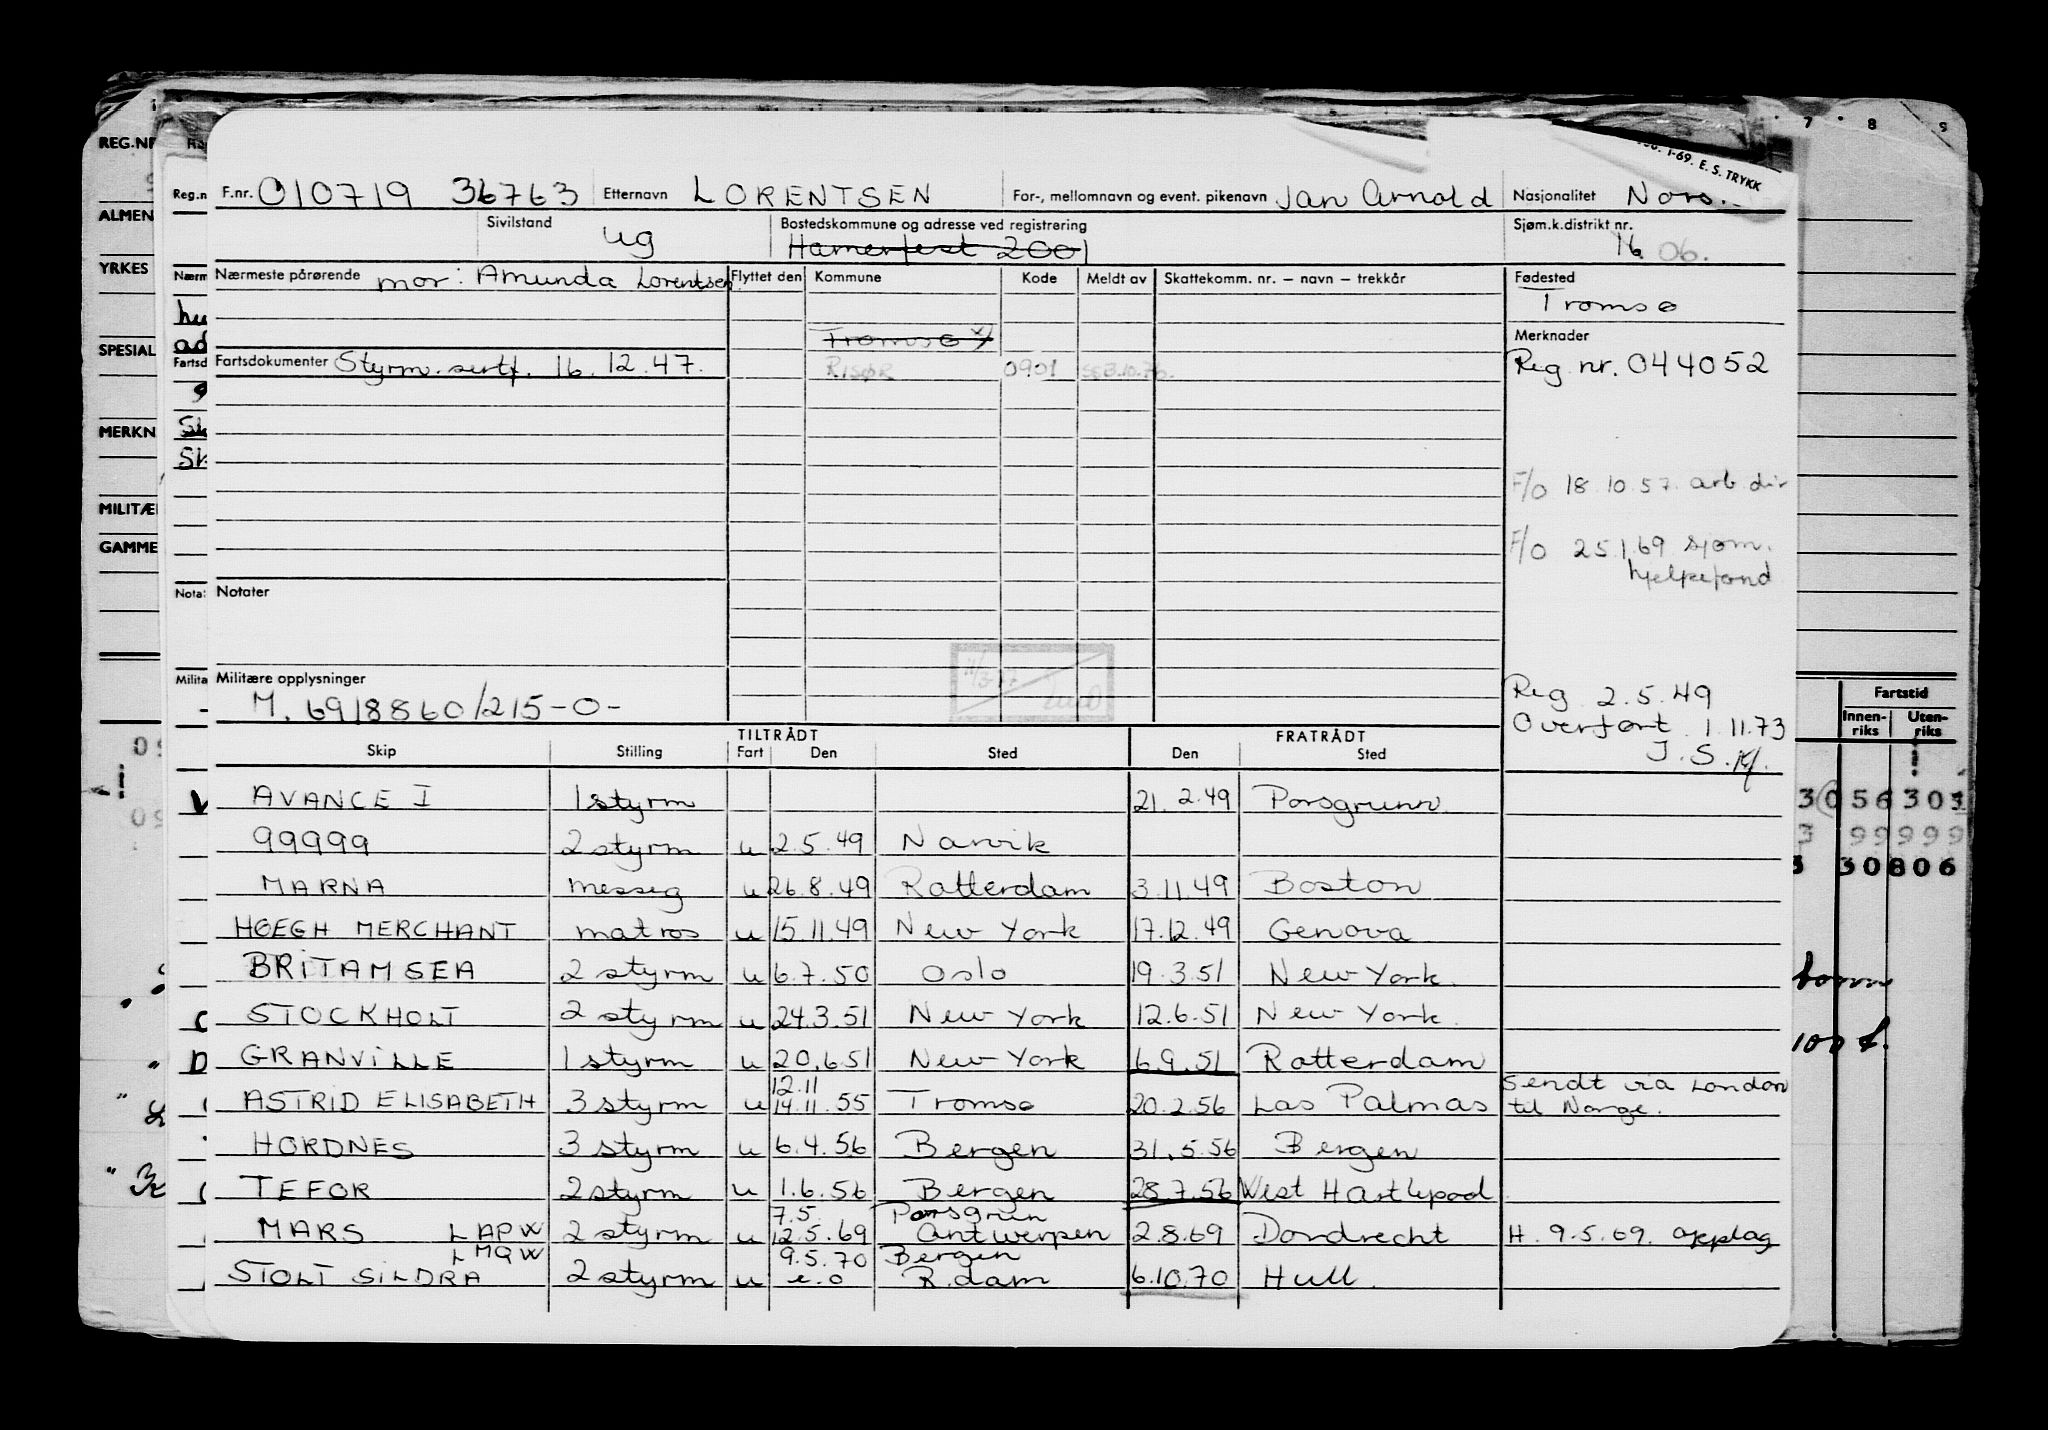 7 8 9
1-69. E. S. TRYKK
REG.NR
ALMEN
YRKES
SPESIAL
MERKN
MILITÆR
GAMME
Reg.n
F.nr. 010719 36763 Etternavn LORENTSEN For-, mellomnavn og event. pikenavn Jan Arnold Nasjonalitet Nors.
Sivilstand ug Bostedskommune og adresse ved registrering Hamerfest 2001 Sjøm.k.distrikt nr. 16 06.
Nærmeste pårørende mor: Amunda Lorentsen Flyttet den Kommune Kode Meldt av Skattekomm. nr. – navn – trekkår Fødested
Tromsø
Tromsø x) Merknader
Fartsdokumenter Styrm. sertf. 16.12.47. RISØR 0901 Reg. nr. 044052
F/O 18.10.57. arb dir
F/O 25.1.69 sjøm.
hjelpefond
Notater
Militære opplysninger
M. 6918860/215-0-
Reg 2.5.49
Overført 1.11.73
J.S.
TILTRÅDT FRATRÅDT
Skip Stilling Fart Den Sted Den Sted
Fartstid
Innen-riks Uten-riks
AVANCE I 1 styrm 21.2.49 Porsgrunn
99999 2 styrm u 2.5.49 Narvik
MARNA messeg u 26.8.49 Rotterdam 3.11.49 Boston
HØEGH MERCHANT matros u 15.11.49 New York 17.12.49 Genova
BRITAMSEA 2 styrm u 6.7.50 Oslo 19.3.51 New York.
STOCKHOLT 2 styrm u 24.3.51 New York 12.6.51 New York.
GRANVILLE 1 styrm u 20.6.51 New York 6.9.51 Rotterdam
12.11 Sendt via London
ASTRID ELISABETH 3 styrm u 14.11.55 Tromsø 20.2.56 Las Palmas til Norge.
HORDNES 3 styrm u 6.4.56 Bergen 31.5.56 Bergen
TEFOR 2 styrm u 1.6.56 Bergen 28.7.56 West Hartlepool
7.5. Porsgrun
MARS LAPW 2 styrm u 12.5.69 Antwerpen 2.8.69 Dordrecht H. 9.5.69. opplag
LMQW 9.5.70 Bergen
STOLT SILDRA 2 styrm u e.o R.dam 6.10.70 Hull.
30806
100 f.